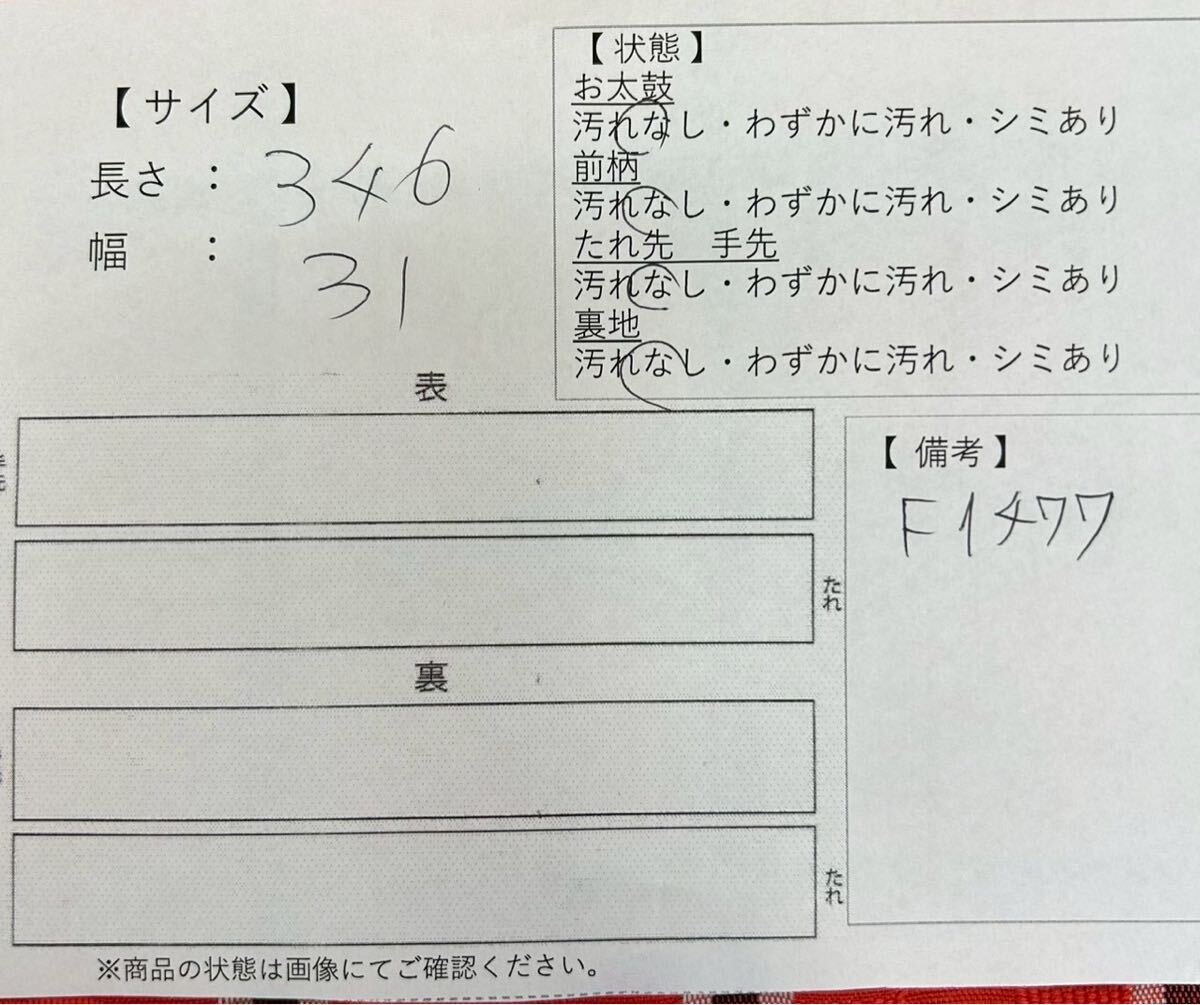 【サイズ】
長さ : 346
幅 : 31
【状態】
お太鼓
汚れなし・わずかに汚れ・シミあり
前柄
汚れなし・わずかに汚れ・シミあり
たれ先 手先
汚れなし・わずかに汚れ・シミあり
裏地
汚れなし・わずかに汚れ・シミあり
表
たれ
裏
たれ
【備考】
F1477
※商品の状態は画像にてご確認ください。